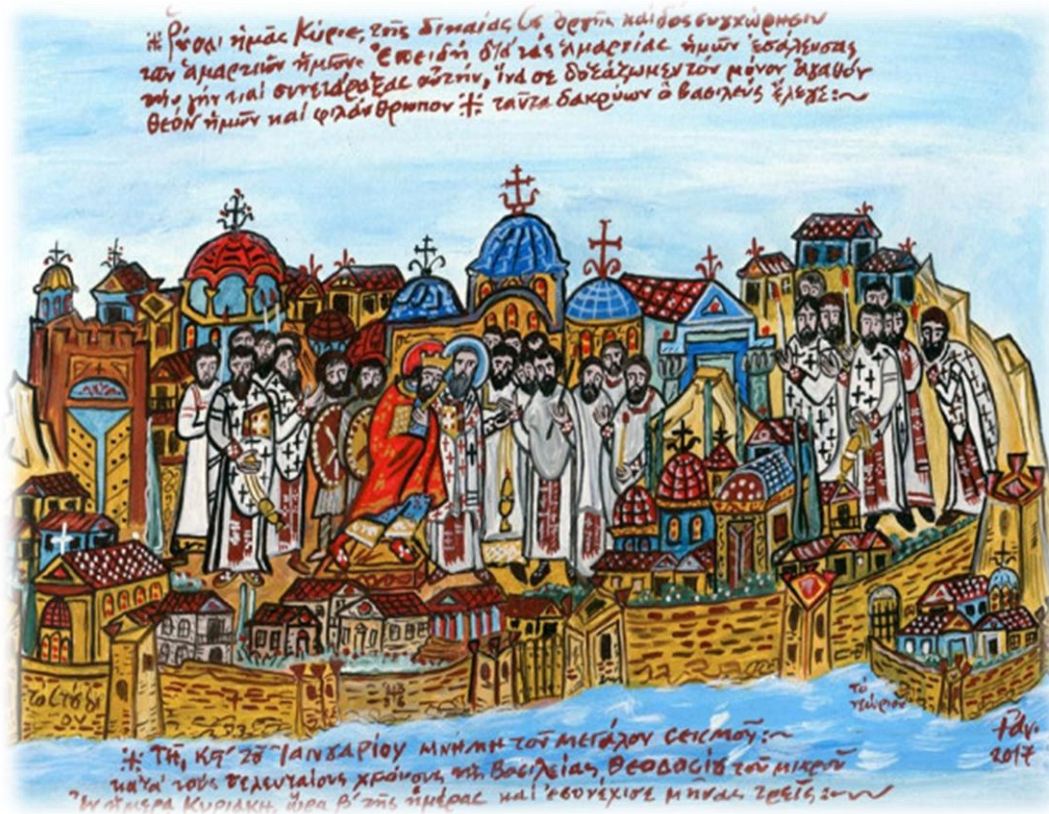 Ῥύσαι ἡμᾶς Κύριε, τῆς δικαίας Σȣ ὀργῆς καὶ δὸς συγχώρησιν
τῶν ἁμαρτιῶν ἡμῶν· Ἐπειδὴ διὰ τὰς ἁμαρτίας ἡμῶν ἐσάλευσας
τὴν γὴν καὶ συνετάραξας αὐτὴν, ἵνα σε δοξάζωμεν τὸν μόνον ἀγαθὸν
θεὸν ἡμῶν καὶ φιλάνθρωπον ⁜ ταῦτα δακρύων ὁ βασιλεὺς ἔλεγε:~
το Στουδι
ου
τὸ
νεώριον
Ράν.
2017
⁜ Τῇ, τȣ Ἰανουαρίου μνήμη τοῦ μεγάλου σεισμοῦ:~
κατὰ τοὺς τελευταίους χρόνους τῆς Βασιλείας, Θεοδοσίȣ τοῦ μικροῦ
Ἐν ἡμέρᾳ Κυριακῇ, ὥρᾳ β' τῆς ἡμέρας καὶ ἐσυνέχισε μῆνας τρεῖς:~